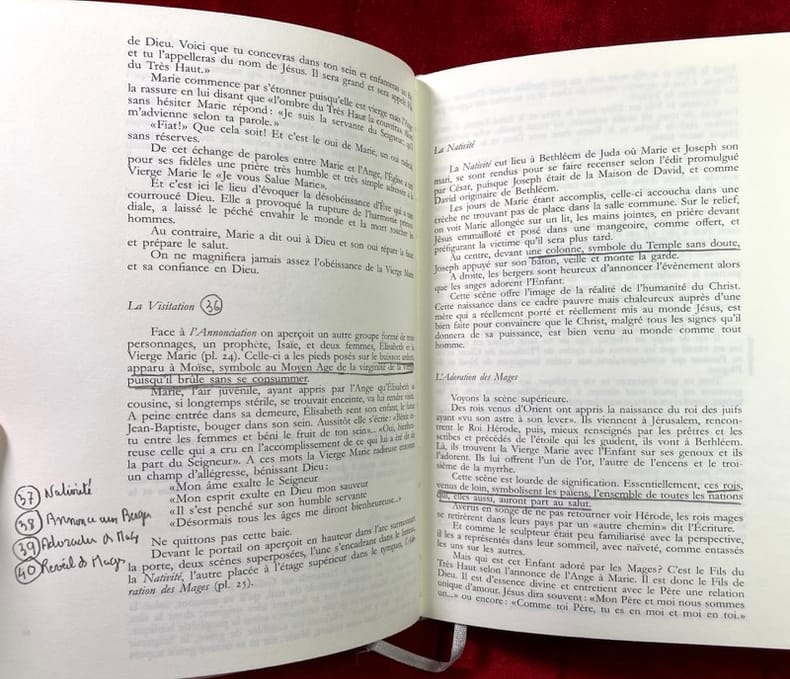 de Dieu. Voici que tu concevras dans ton sein et enfanteras un fils
et tu l'appelleras du nom de Jésus. Il sera grand et sera appelé Fils
du Très Haut.»
Marie commence par s'étonner puisqu'elle est vierge mais l'Ange
la rassure en lui disant que «l'ombre du Très Haut la couvrira». Alors
sans hésiter Marie répond: «Je suis la servante du Seigneur; qu'il
m'advienne selon ta parole.»
«Fiat!» Que cela soit! Et c'est le oui de Marie, un oui radical
sans réserves.
De cet échange de paroles entre Marie et l'Ange, l'Église a tiré
pour ses fidèles une prière très humble et très simple adressée à la
Vierge Marie le «Je vous Salue Marie».
Et c'est ici le lieu d'évoquer la désobéissance d'Ève qui a tant
courroucé Dieu. Elle a provoqué la rupture de l'harmonie primor-
diale, a laissé le péché envahir le monde et la mort toucher les
hommes.
Au contraire, Marie a dit oui à Dieu et son oui répare la faute
et prépare le salut.
On ne magnifiera jamais assez l'obéissance de la Vierge Marie
et sa confiance en Dieu.
La Visitation 36
Face à l'Annonciation on aperçoit un autre groupe formé de trois
personnages, un prophète, Isaïe, et deux femmes, Elisabeth et la
Vierge Marie (pl. 24). Celle-ci a les pieds posés sur le buisson ardent
apparu à Moïse, symbole au Moyen Age de la virginité de la Vierge
puisqu'il brûle sans se consummer.
Marie, l'air juvénile, ayant appris par l'Ange qu'Élisabeth sa
cousine, si longtemps stérile, se trouvait enceinte, va lui rendre visite.
A peine entrée dans sa demeure, Élisabeth sent son enfant, le futur
Jean-Baptiste, bouger dans son sein. Aussitôt elle s'écrie: «Bénie es-
tu entre les femmes et béni le fruit de ton sein»... «Oui, bienheu-
reuse celle qui a cru en l'accomplissement de ce qui lui a été dit de
la part du Seigneur». A ces mots la Vierge Marie radieuse entonne
un champ d'allégresse, bénissant Dieu:
«Mon âme exalte le Seigneur
«Mon esprit exulte en Dieu mon sauveur
«Il s'est penché sur son humble servante
«Désormais tous les âges me diront bienheureuse...»
Ne quittons pas cette baie.
Devant le portail on aperçoit en hauteur dans l'arc surmontant
la porte, deux scènes superposées, l'une s'encadrant dans le linteau
la Nativité, l'autre placée à l'étage supérieur dans le tympan, l'Ado-
ration des Mages (pl. 25).
37 Nativité
38 Annonce aux Bergers
39 Adoration d Mages
40 Réveil d Mages
La Nativité
La Nativité eut lieu à Bethléem de Juda où Marie et Joseph son
mari, se sont rendus pour se faire recenser selon l'édit promulgué
par César, puisque Joseph était de la Maison de David, et comme
David originaire de Bethléem.
Les jours de Marie étant accomplis, celle-ci accoucha dans une
crèche ne trouvant pas de place dans la salle commune. Sur le relief,
on voit Marie allongée sur un lit, les mains jointes, en prière devant
Jésus emmailloté et posé dans une mangeoire, comme offert, et
préfigurant la victime qu'il sera plus tard.
Au centre, devant une colonne, symbole du Temple sans doute,
Joseph appuyé sur son bâton, veille et monte la garde.
A droite, les bergers sont heureux d'annoncer l'évènement alors
que les anges adorent l'Enfant.
Cette scène offre l'image de la réalité de l'humanité du Christ.
Cette naissance dans ce cadre pauvre mais chaleureux auprès d'une
mère qui a réellement porté et réellement mis au monde Jésus, est
bien faite pour convaincre que le Christ, malgré tous les signes qu'il
donnera de sa puissance, est bien venu au monde comme tout
homme.
L'Adoration des Mages
Voyons la scène supérieure.
Des rois venus d'Orient ont appris la naissance du roi des juifs
ayant «vu son astre à son lever». Ils viennent à Jérusalem, rencon-
trent le Roi Hérode, puis, mieux renseignés par les prêtres et les
scribes et précédés de l'étoile qui les guident, ils vont à Bethléem.
Là, ils trouvent la Vierge Marie avec l'Enfant sur ses genoux et ils
l'adorent. Ils lui offrent l'un de l'or, l'autre de l'encens et le troi-
sième de la myrrhe.
Cette scène est lourde de signification. Essentiellement, ces rois,
venus de loin, symbolisent les païens, l'ensemble de toutes les nations
qui, elles aussi, auront part au salut.
Avertis en songe de ne pas retourner voir Hérode, les rois mages
se retirèrent dans leurs pays par un «autre chemin» dit l'Écriture.
Et comme le sculpteur était peu familiarisé avec la perspective,
il les a représentés dans leur sommeil, avec naïveté, comme entassés
les uns sur les autres.
Mais qui est cet Enfant adoré par les Mages? C'est le Fils du
Très Haut selon l'annonce de l'Ange à Marie. Il est donc le Fils de
Dieu. Il est d'essence divine et entretient avec le Père une relation
unique d'amour. Jésus dira souvent: «Mon Père et moi nous sommes
un...» ou encore: «Comme toi Père, tu es en moi et moi en toi.»